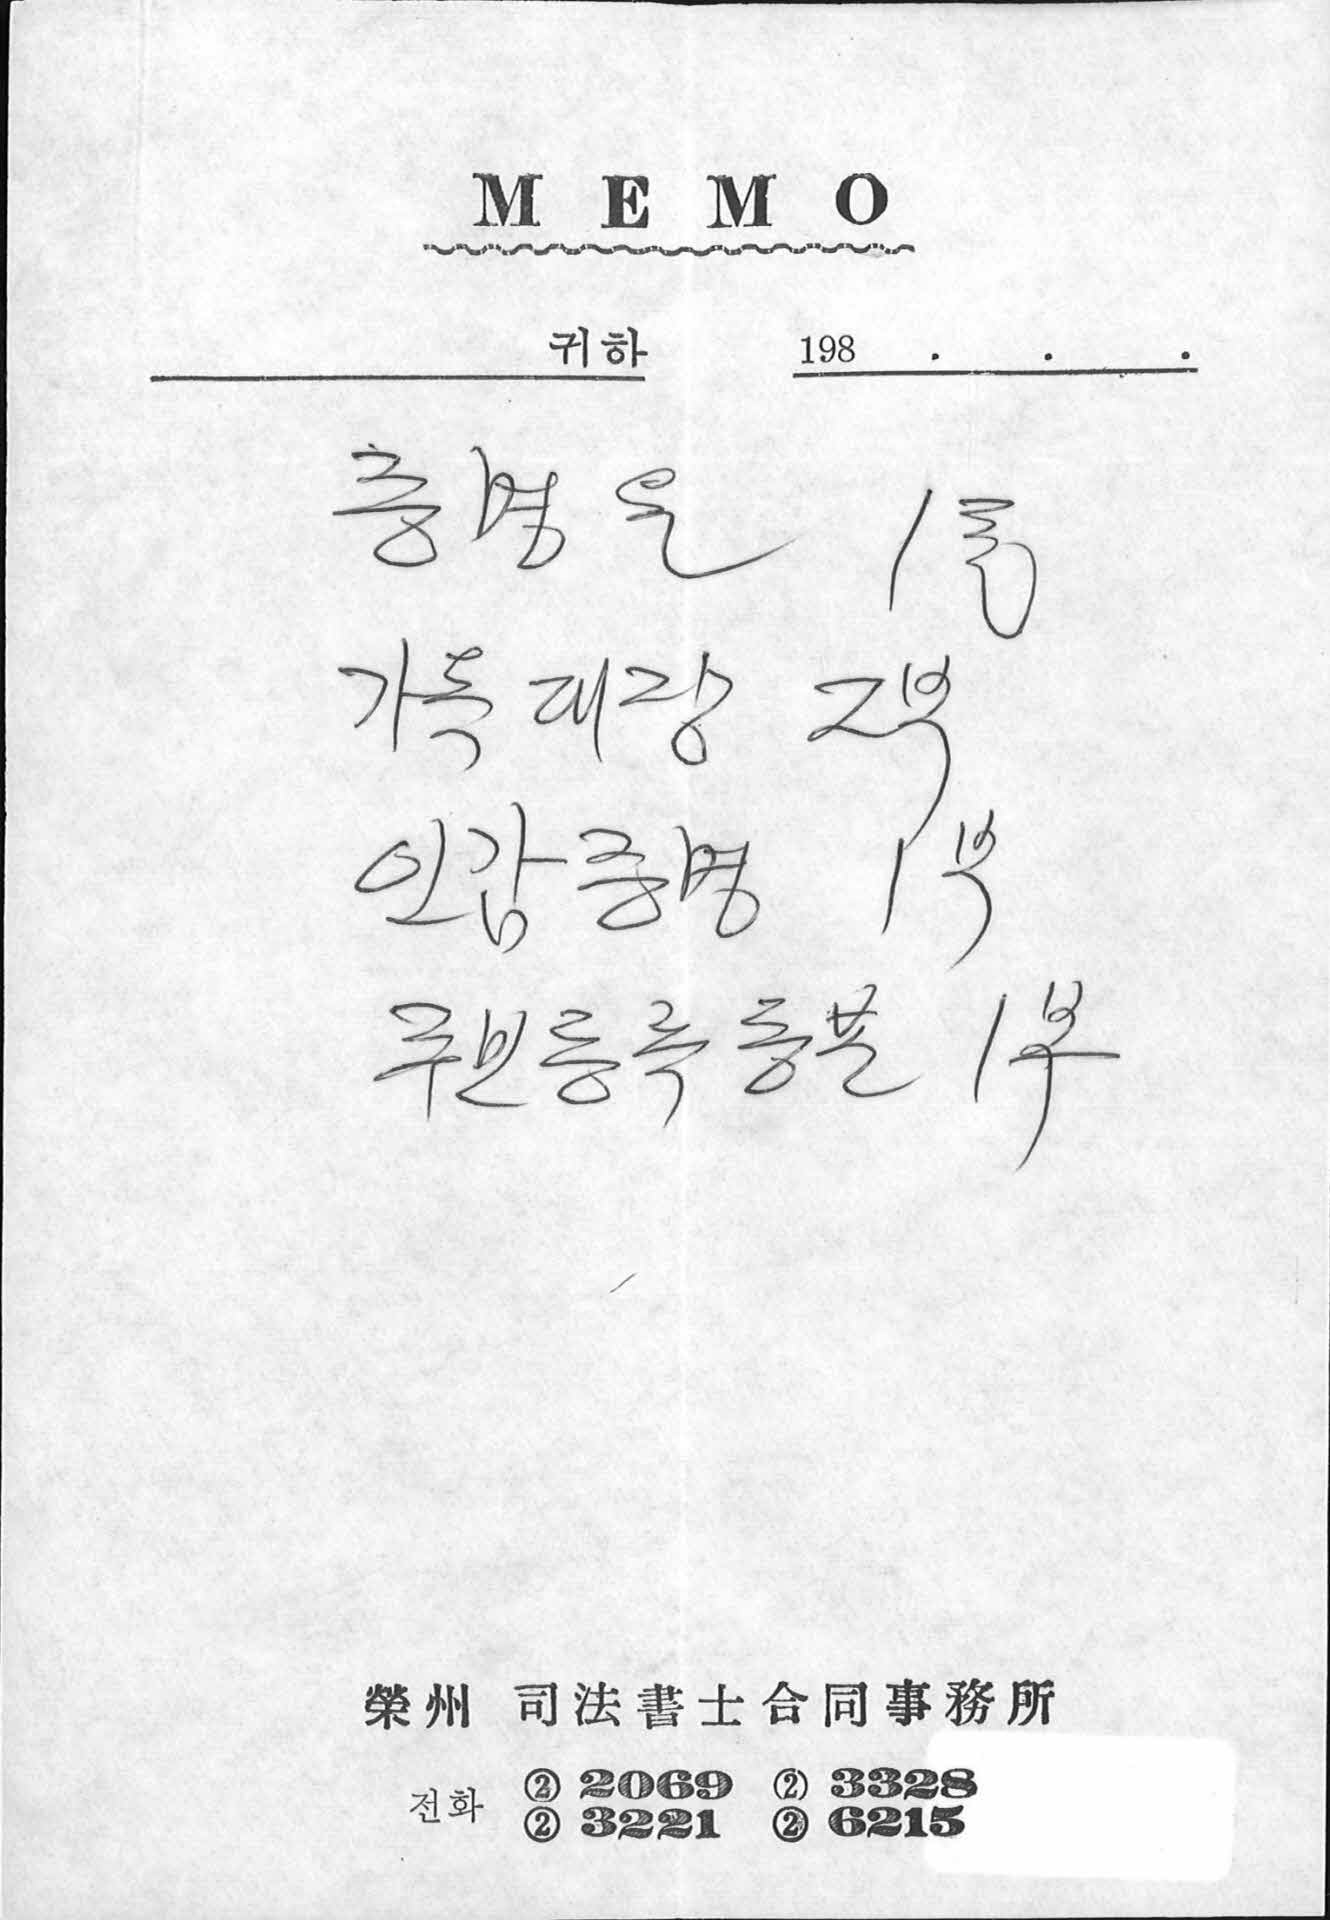 MEMO
귀하 198 . . .
증명원 1통
가옥대장 2부
인감증명 1부
주민등록등본 1부
榮州 司法書士合同事務所
전화 ② 2069 ② 3328
② 3221 ② 6215